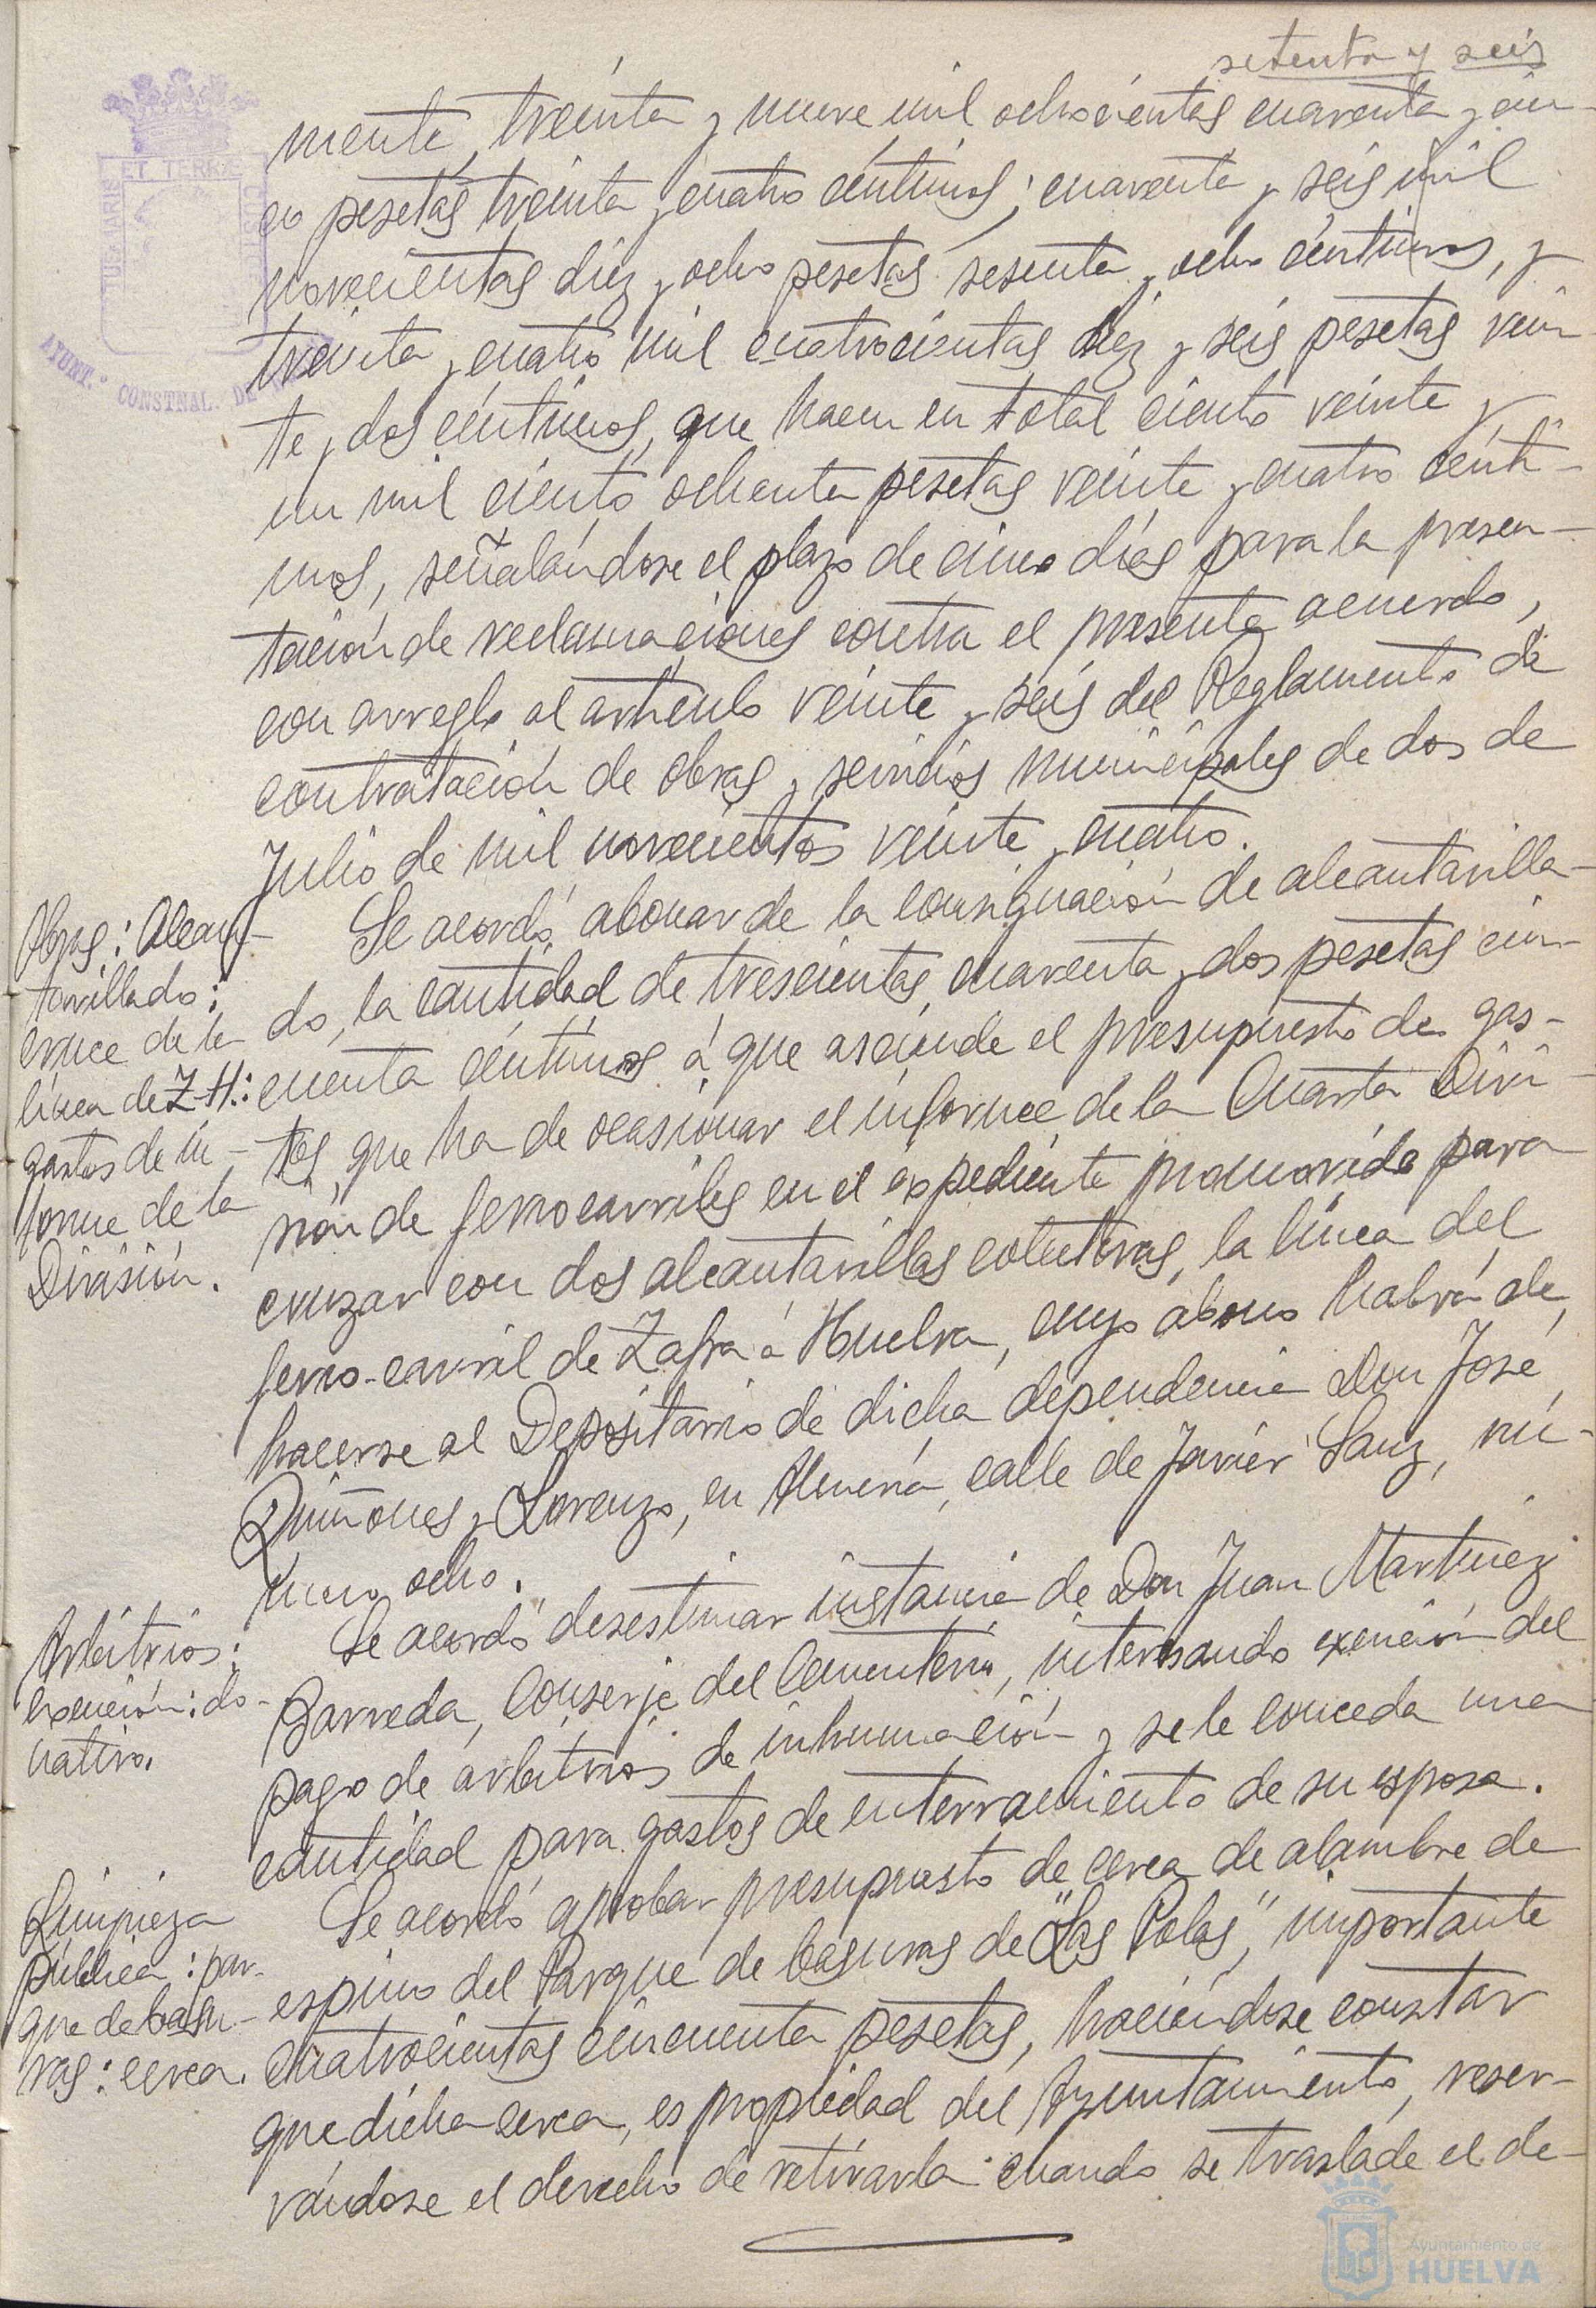 setenta y seis
PORTUS MARIS ET TERRÆ CUSTODIA
AYUNT.º CONSTNAL. DE
mente, treinta y nueve mil ochocientas cuarenta y cin-
co pesetas treinta y cuatro céntimos; cuarenta y seis mil
novecientas diez y ocho pesetas sesenta y ocho céntimos, y
treinta y cuatro mil cuatrocientas diez y seis pesetas vein
te y dos céntimos, que hacen en total ciento veinte y
un mil ciento ochenta pesetas veinte y cuatro cénti-
mos, señalándose el plazo de cinco días para la presen-
tación de reclamaciones contra el presente acuerdo,
con arreglo al artículo veinte y seis del Reglamento de
contratación de obras y servicios municipales de dos de
Julio de mil novecientos veinte y cuatro.
Obras: Alcan-
tarillado:
cruce de la
línea de Z-H.:
gastos de in-
forme de la
División.
Se acordó abonar de la consignación de alcantarilla-
do, la cantidad de trescientas cuarenta y dos pesetas cin-
cuenta céntimos á que asciende el presupuesto de gas-
tos, que ha de ocasionar el informe de la Cuarta Divi-
sión de ferrocarriles en el expediente promovido para
cruzar con dos alcantarillas colectoras, la línea del
ferro-carril de Zafra á Huelva, cuyo abono habrá de,
hacerse al Depositario de dicha dependencia Don José
Quiñones y Lorenzo, en Almería, calle de Javier Sanz, nú-
mero ocho.
Arbitrios:
exención: do-
nativo.
Se acordó desestimar instancia de Don Juan Martinez
Barreda, Conserje del Cementerio, interesando exención del
pago de arbitrios de inhumación y se le conceda una
cantidad para gastos de enterramiento de su esposa.
Limpieza
pública: par-
que de basu-
ras: cerca.
Se acordó aprobar presupuesto de cerca de alambre de
espino del Parque de basuras de "Las Colas", importante
cuatrocientas cincuenta pesetas, haciéndose constar
que dicha cerca, es propiedad del Ayuntamiento, reser-
vándose el derecho de retirarla cuando se traslade el de-
Ayuntamiento de
HUELVA